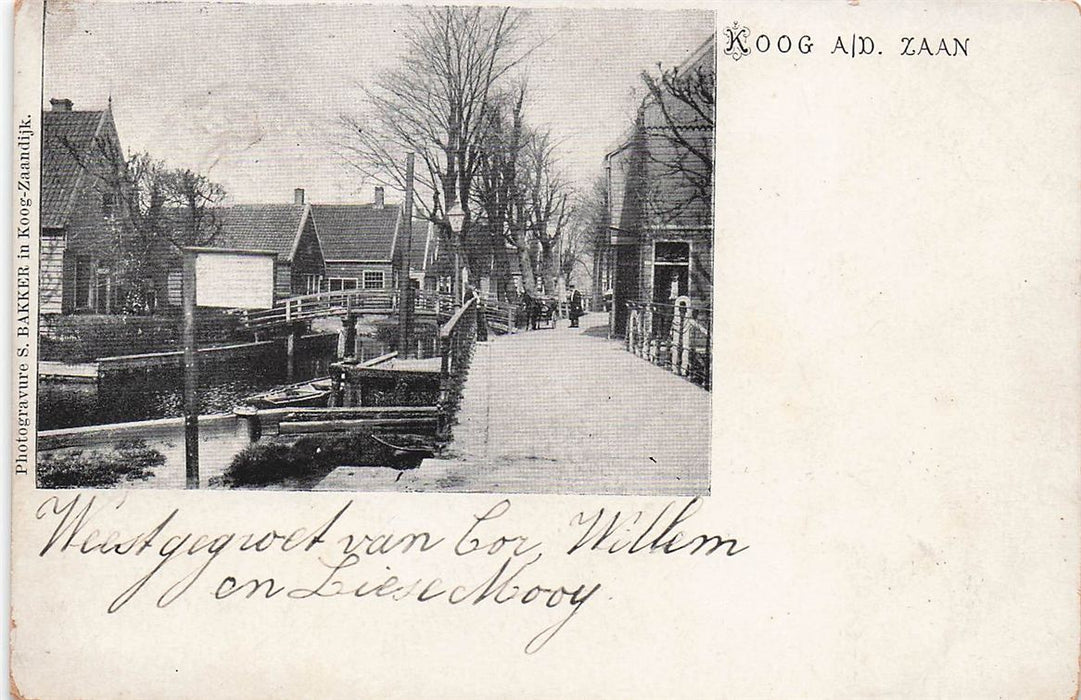 KOOG A/D. ZAAN
Photogravure S. BAKKER in Koog-Zaandijk.
Weest gegroet van Cor, Willem
en Liese Mooy.